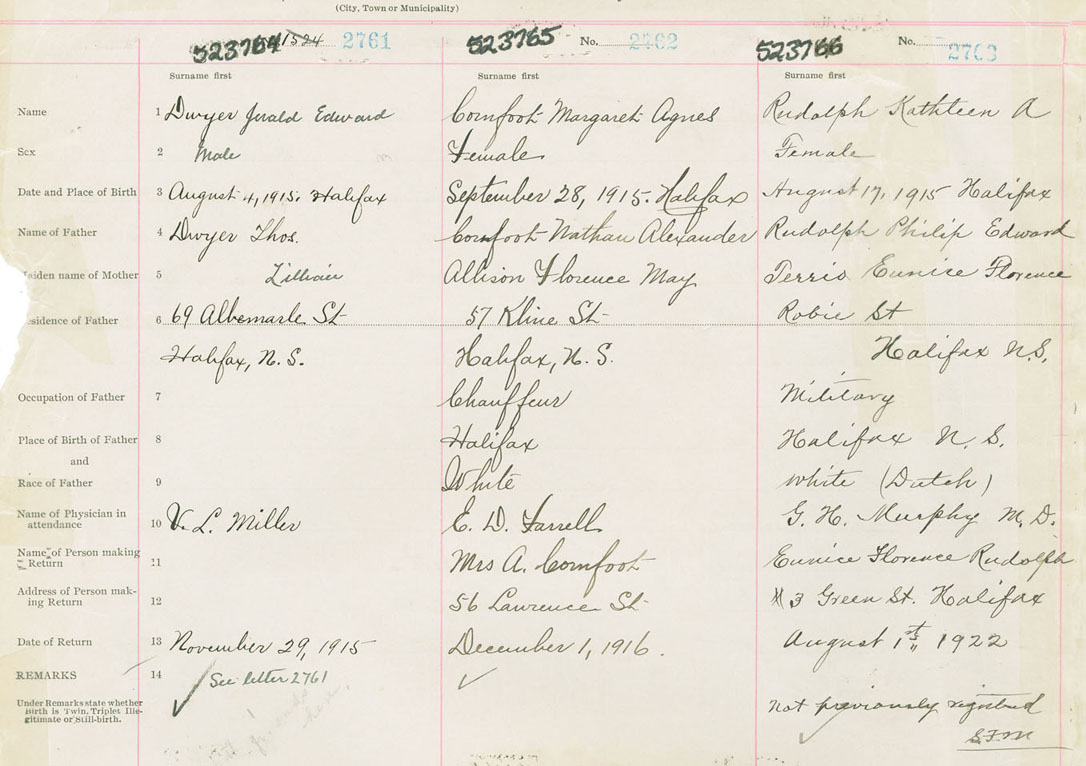 (City, Town or Municipality)
523764 1524 2761
523765 No. 2762
523766 No. 2763
Surname first Surname first Surname first
Name 1 Dwyer Jerald Edward Cornfoot Margaret Agnes Rudolph Kathleen A
Sex 2 Male Female Female
Date and Place of Birth 3 August 4, 1915. Halifax September 28, 1915. Halifax August 17, 1915 Halifax
Name of Father 4 Dwyer Thos. Cornfoot Nathan Alexander Rudolph Philip Edward
aiden name of Mother 5 Lillian Allison Florence May Terrio Eunice Florence
esidence of Father 6 69 Albemarle St 57 Kline St Robie St
Halifax, N.S. Halifax, N.S. Halifax N.S.
Occupation of Father 7 Chauffeur Military
Place of Birth of Father 8 Halifax Halifax N.S.
and
Race of Father 9 White White (Dutch)
Name of Physician in
attendance 10 V. L. Miller E. D. Farrell G. H. Murphy M.D.
Name of Person making
Return 11 Mrs A. Cornfoot Eunice Florence Rudolph
Address of Person mak-
ing Return 12 56 Lawrence St #3 Green St. Halifax
Date of Return 13 November 29, 1915 December 1, 1916. August 1st, 1922
REMARKS 14 See letter 2761
Under Remarks state whether
Birth is Twin, Triplet Ille-
gitimate or Still-birth.
Not previously registered
S.F.M